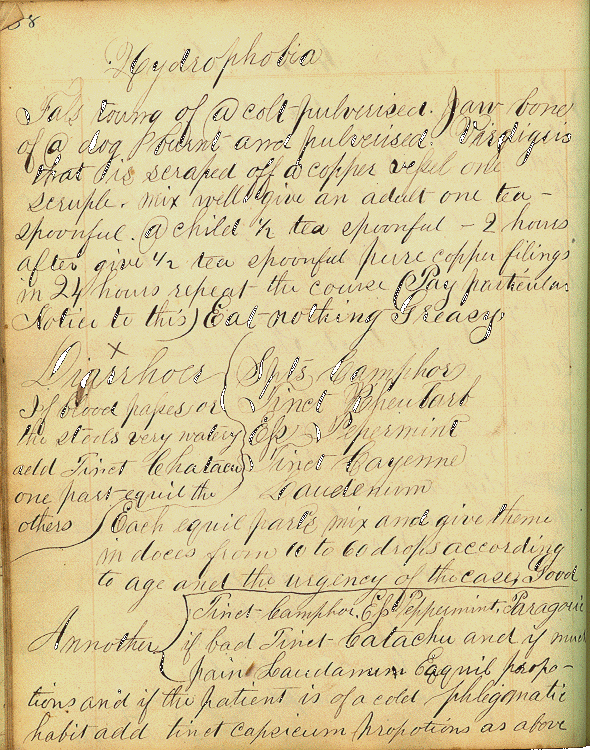 58
Hydrophobia
Fals toung of a colt pulverised. Jaw bone
of a dog burnt and pulverised. Virdigris
that is scraped off a copper vessel one
scruple. mix well give an adult one tea-
spoonful. a child 1/2 tea spoonful – 2 hours
after give 1/2 tea spoonful pure copper filings
in 24 hours repeat the course (Pay particular
Notice to this) Eat nothing Greacy
Diarrhoea
If blood passes or
the stools very watery
add Tinct Chatacu
one part equil the
others
Spts Camphor
Tinct Rheubarb
Ess Pepermint
Tinct Cayenne
Laudenum
Each equil parts mix and give them
in doces from 10 to 60 drops according
to age and the urgency of the case, Good
Annother
Tinct Camphor, Ess Peppermint, Paragoric
if bad Tinct Catachu and if much
pain Laudanum Eqquil propo-
tions and if the patient is of a cold phlegmatic
habit add tinct capsicum propotions as above